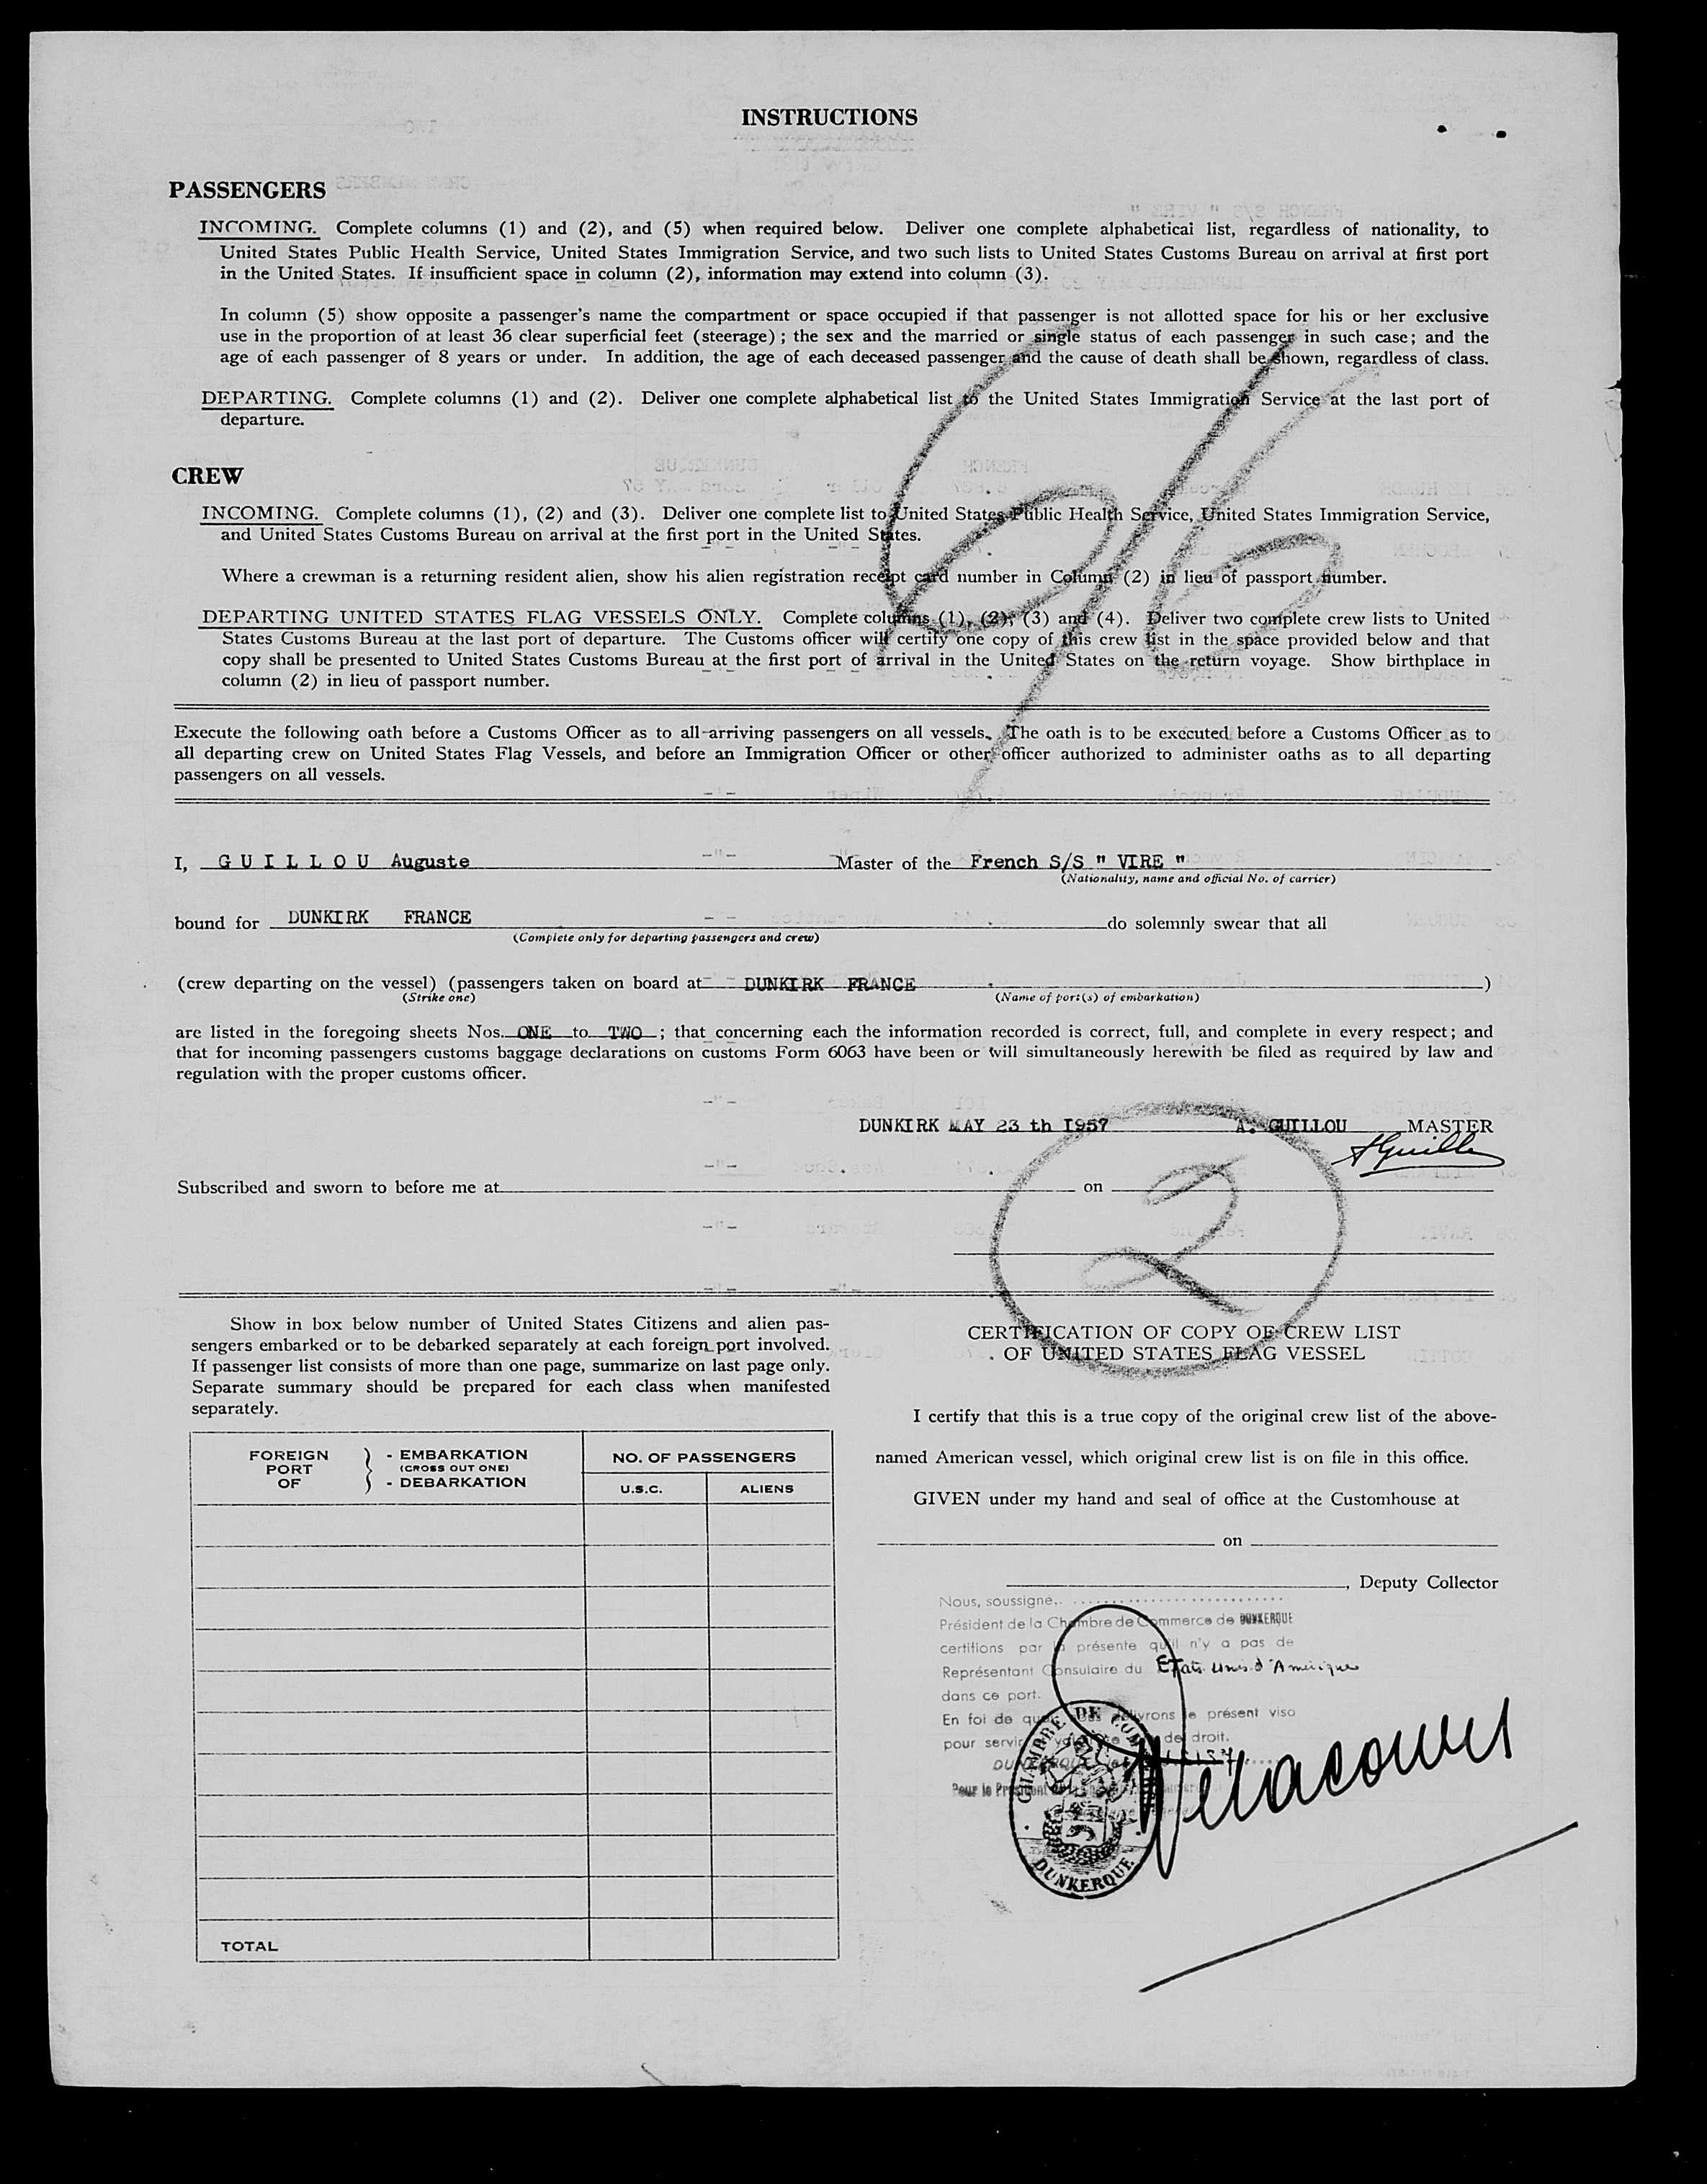 INSTRUCTIONS
PASSENGERS
INCOMING. Complete columns (1) and (2), and (5) when required below. Deliver one complete alphabetical list, regardless of nationality, to
United States Public Health Service, United States Immigration Service, and two such lists to United States Customs Bureau on arrival at first port
in the United States. If insufficient space in column (2), information may extend into column (3).
In column (5) show opposite a passenger's name the compartment or space occupied if that passenger is not allotted space for his or her exclusive
use in the proportion of at least 36 clear superficial feet (steerage); the sex and the married or single status of each passenger in such case; and the
age of each passenger of 8 years or under. In addition, the age of each deceased passenger and the cause of death shall be shown, regardless of class.
DEPARTING. Complete columns (1) and (2). Deliver one complete alphabetical list to the United States Immigration Service at the last port of
departure.
CREW
INCOMING. Complete columns (1), (2) and (3). Deliver one complete list to United States Public Health Service, United States Immigration Service,
and United States Customs Bureau on arrival at the first port in the United States.
Where a crewman is a returning resident alien, show his alien registration receipt card number in Column (2) in lieu of passport number.
DEPARTING UNITED STATES FLAG VESSELS ONLY. Complete columns (1), (2), (3) and (4). Deliver two complete crew lists to United
States Customs Bureau at the last port of departure. The Customs officer will certify one copy of this crew list in the space provided below and that
copy shall be presented to United States Customs Bureau at the first port of arrival in the United States on the return voyage. Show birthplace in
column (2) in lieu of passport number.
Execute the following oath before a Customs Officer as to all arriving passengers on all vessels. The oath is to be executed before a Customs Officer as to
all departing crew on United States Flag Vessels, and before an Immigration Officer or other officer authorized to administer oaths as to all departing
passengers on all vessels.
I, G U I L L O U Auguste Master of the French S/S " VIRE "
(Nationality, name and official No. of carrier)
bound for DUNKIRK FRANCE do solemnly swear that all
(Complete only for departing passengers and crew)
(crew departing on the vessel) (passengers taken on board at DUNKIRK FRANCE )
(Strike one) (Name of port(s) of embarkation)
are listed in the foregoing sheets Nos. ONE to TWO ; that concerning each the information recorded is correct, full, and complete in every respect; and
that for incoming passengers customs baggage declarations on customs Form 6063 have been or will simultaneously herewith be filed as required by law and
regulation with the proper customs officer.
DUNKIRK MAY 23 th I957 A. GUILLOU MASTER
AGuillou
Subscribed and sworn to before me at on
2
Show in box below number of United States Citizens and alien pas-
sengers embarked or to be debarked separately at each foreign port involved.
If passenger list consists of more than one page, summarize on last page only.
Separate summary should be prepared for each class when manifested
separately.
FOREIGN PORT OF } - EMBARKATION (CROSS OUT ONE) - DEBARKATION
NO. OF PASSENGERS
U.S.C. ALIENS
TOTAL
CERTIFICATION OF COPY OF CREW LIST
OF UNITED STATES FLAG VESSEL
I certify that this is a true copy of the original crew list of the above-
named American vessel, which original crew list is on file in this office.
GIVEN under my hand and seal of office at the Customhouse at
on
, Deputy Collector
Nous, soussigné,
Président de la Chambre de Commerce de DUNKERQUE
certifions par la présente qu'il n'y a pas de
Représentant Consulaire du Etats Unis d'Amérique
dans ce port.
En foi de quoi nous délivrons le présent visa
pour servir de droit.
DUNKERQUE
Pour le Président
CHAMBRE DE COMMERCE
DUNKERQUE